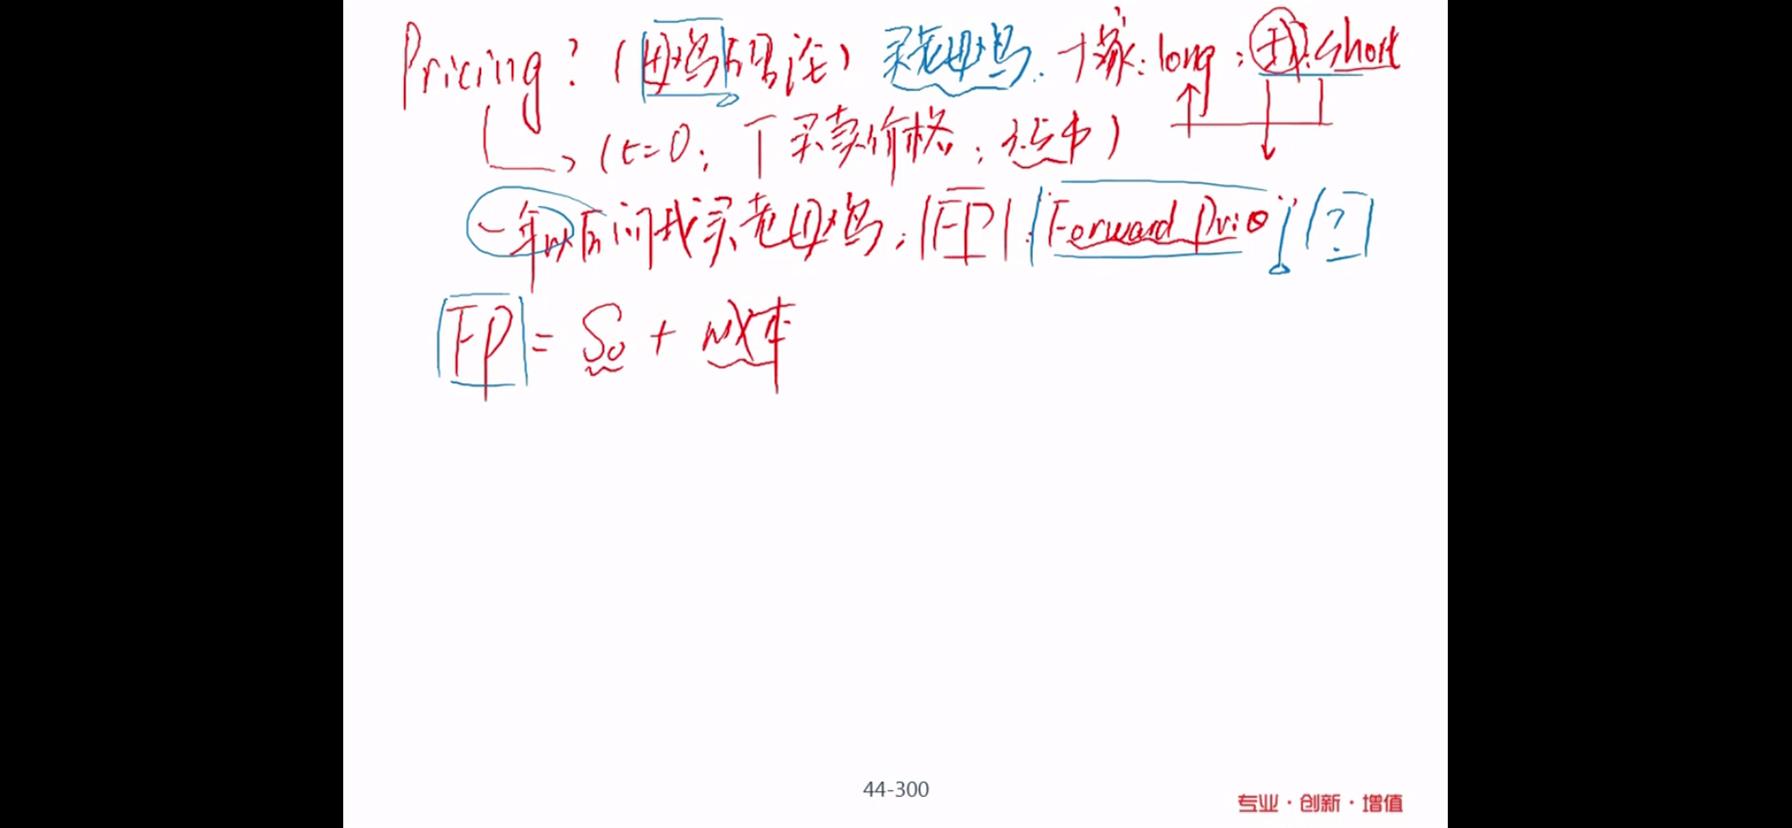 Pricing? (母鸡理论) 买老母鸡. 大家: long; 我: short
(t=0; 下买卖价格; 远期)
一年以后问我买老母鸡, FP: Forward Price ?
FP = S₀ + 成本
44-300
专业·创新·增值